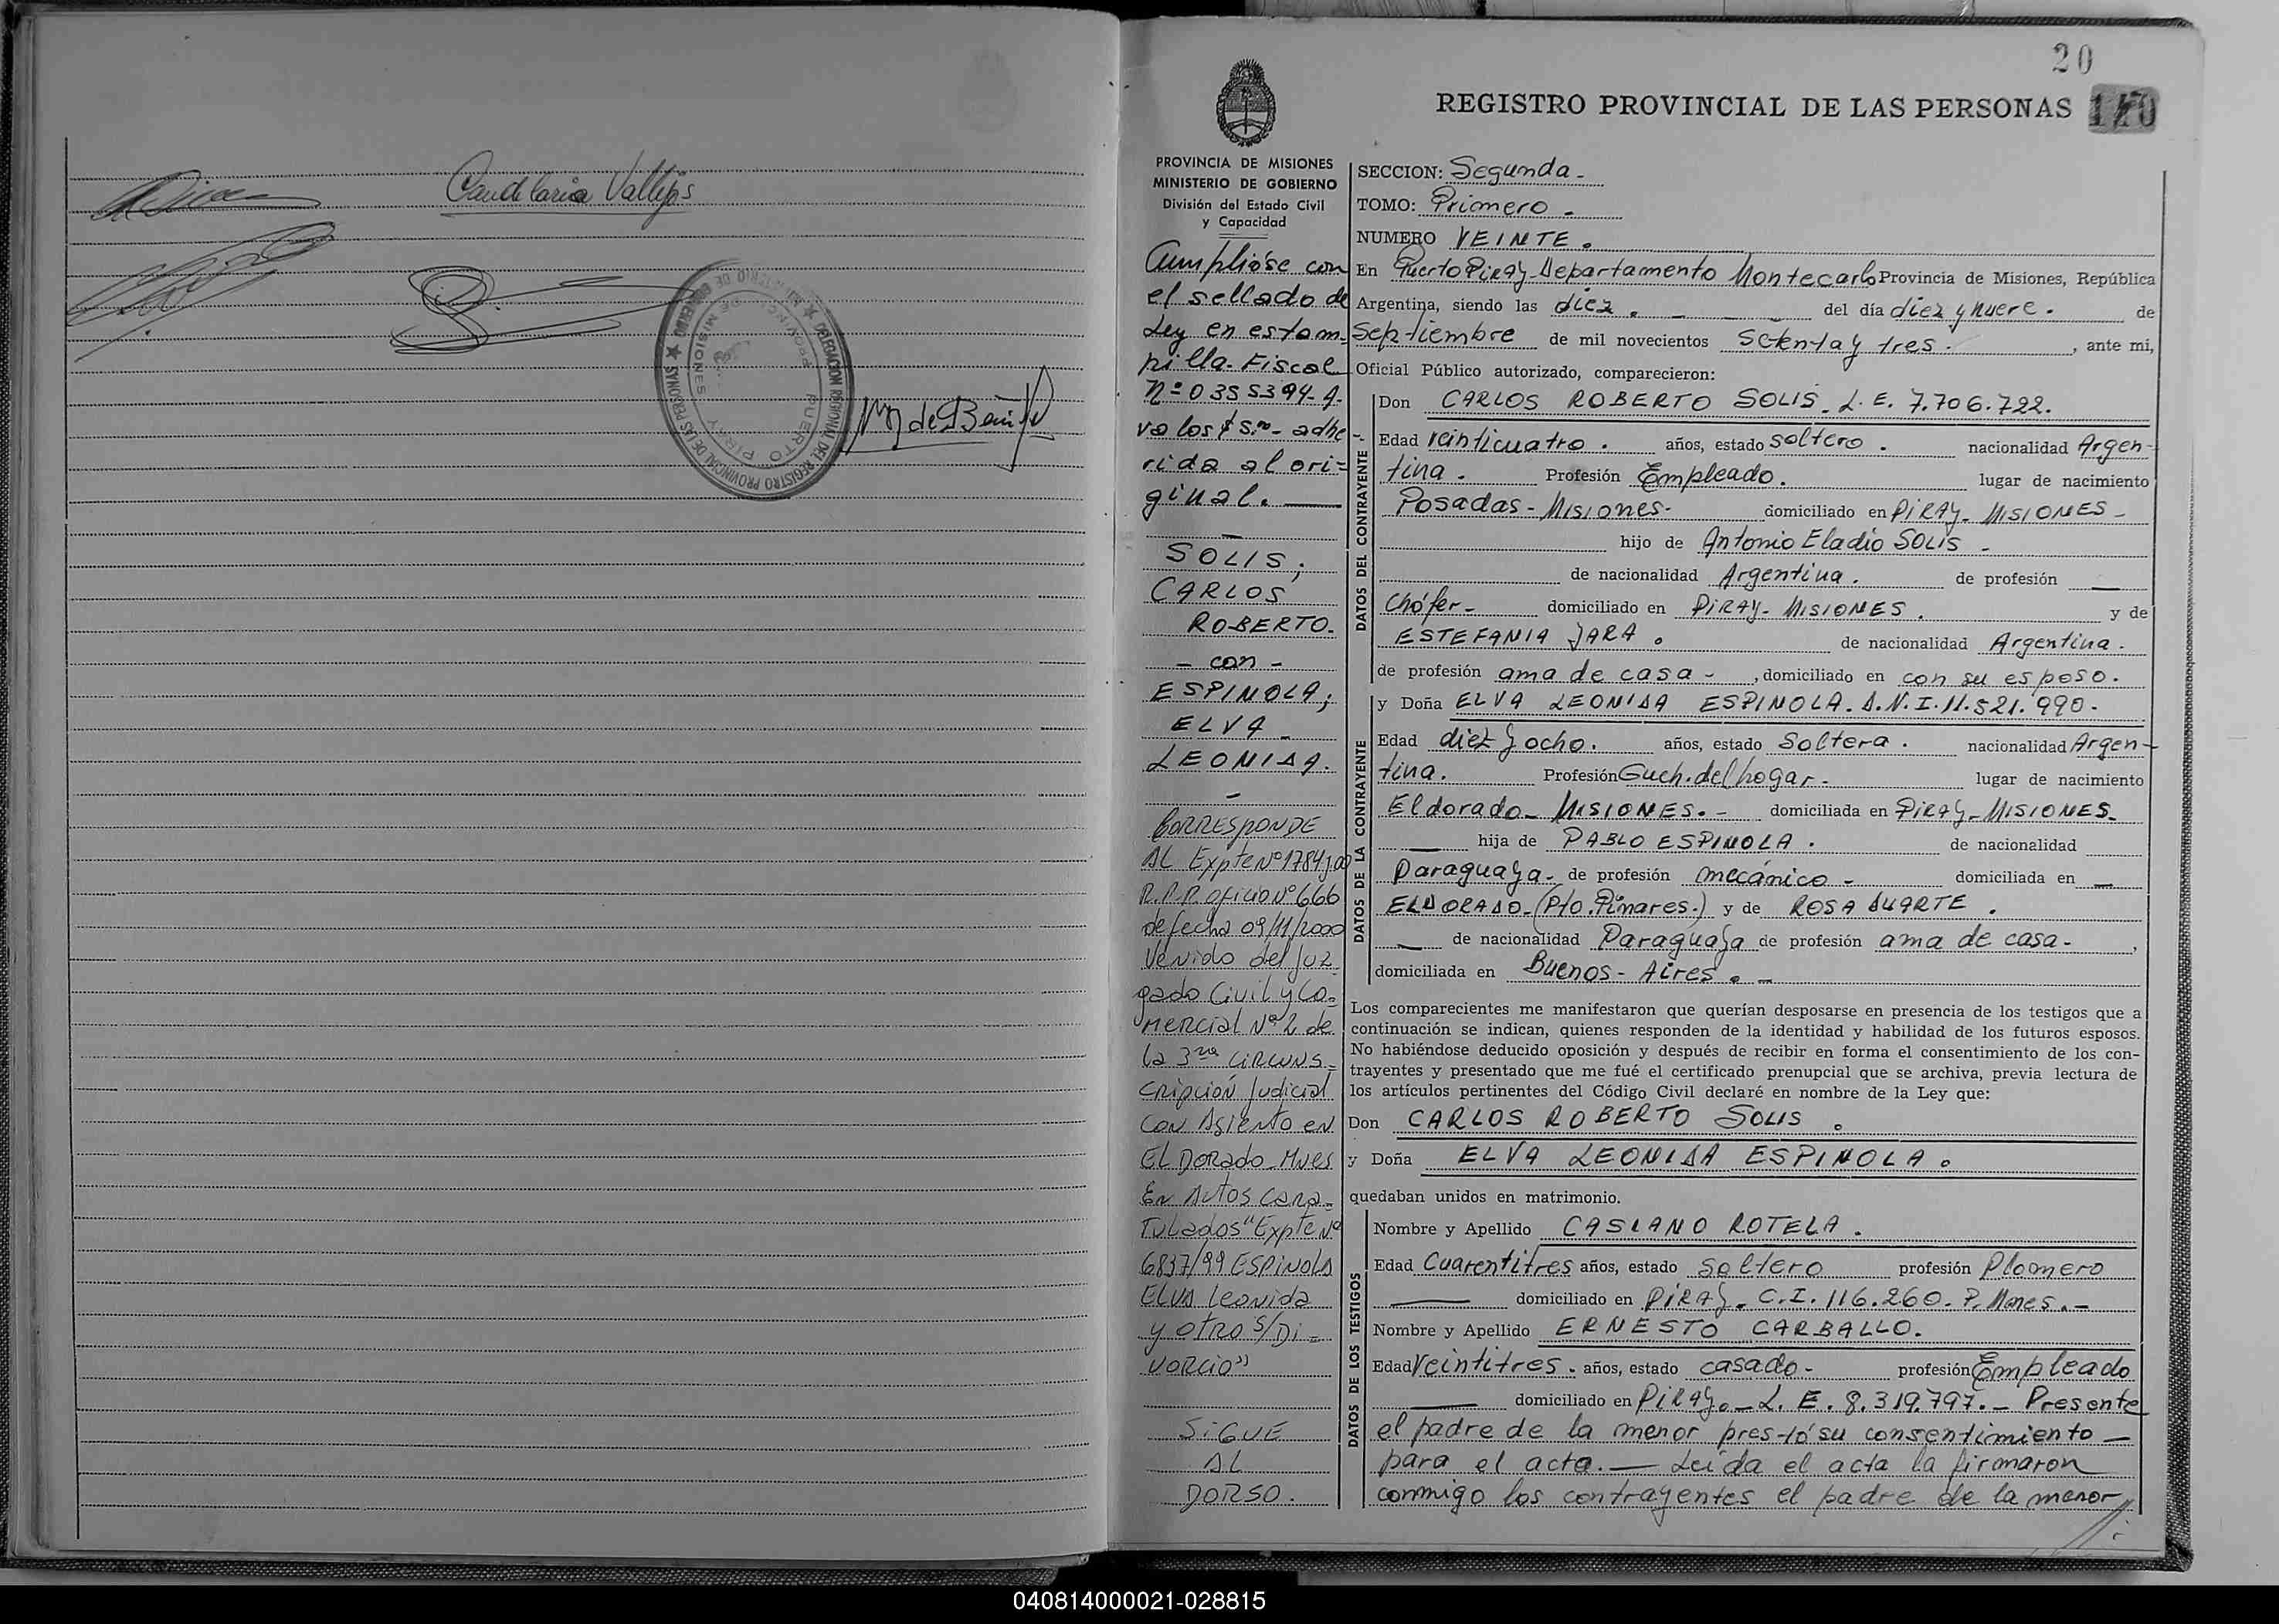 Candelaria Vallejos
PUERTO PIRAY
M de Benítez
20
REGISTRO PROVINCIAL DE LAS PERSONAS
PROVINCIA DE MISIONES
MINISTERIO DE GOBIERNO
División del Estado Civil
y Capacidad
Cumplióse con
el sellado de
Ley en estam-
pilla. Fiscal
Nº 0355394-A.
valos $ 5.00- adhe
rida al ori=
ginal.
SOLIS;
CARLOS
ROBERTO.
- con -
ESPINOLA;
ELVA -
LEONIDA.
-
CORRESPONDE
AL Expte Nº 1784/00
R.P.P. oficio Nº 666
de fecha 09/11/2000
Venido del Juz
gado Civil y Co=
mercial Nº 2 de
la 3ra Circuns=
cripción Judicial
con Asiento en
El Dorado-Mnes
En Autos Cara=
tulados "Expte Nº
6837/99 ESPINOLA
Elva Leonida
y otro S/Di=
vorcio"
SIGUE
AL
DORSO.
SECCION: Segunda -
TOMO: Primero -
NUMERO VEINTE.
En Puerto Piray-Departamento Montecarlo Provincia de Misiones, República
Argentina, siendo las diez. - - del día diez y nueve. de
Septiembre de mil novecientos setenta y tres. , ante mi,
Oficial Público autorizado, comparecieron:
DATOS DEL CONTRAYENTE
Don CARLOS ROBERTO SOLIS. L.E. 7.706.722.
Edad veinticuatro. años, estado soltero. nacionalidad Argen-
tina. Profesión Empleado. lugar de nacimiento
Posadas-Misiones- domiciliado en PIRAY-MISIONES-
hijo de Antonio Eladio SOLIS -
de nacionalidad Argentina. de profesión —
chófer- domiciliado en PIRAY-MISIONES. y de
ESTEFANIA JARA. de nacionalidad Argentina.
de profesión ama de casa - , domiciliado en con su esposo.
DATOS DE LA CONTRAYENTE
y Doña ELVA LEONIDA ESPINOLA. D.N.I. 11.521.990-
Edad diez y ocho. años, estado Soltera. nacionalidad Argen-
tina. Profesión Queh. del hogar- lugar de nacimiento
Eldorado-MISIONES.- domiciliada en PIRAY-MISIONES-
— hija de PABLO ESPINOLA. de nacionalidad
Paraguaya- de profesión mecánico - domiciliada en —
ELDORADO-(Pto. Pinares.) y de ROSA DUARTE.
— de nacionalidad Paraguaya de profesión ama de casa- ,
domiciliada en Buenos-Aires.-
Los comparecientes me manifestaron que querían desposarse en presencia de los testigos que a
continuación se indican, quienes responden de la identidad y habilidad de los futuros esposos.
No habiéndose deducido oposición y después de recibir en forma el consentimiento de los con-
trayentes y presentado que me fué el certificado prenupcial que se archiva, previa lectura de
los artículos pertinentes del Código Civil declaré en nombre de la Ley que:
Don CARLOS ROBERTO SOLIS.
y Doña ELVA LEONIDA ESPINOLA.
quedaban unidos en matrimonio.
DATOS DE LOS TESTIGOS
Nombre y Apellido CASIANO ROTELA.
Edad Cuarentitres años, estado soltero profesión Plomero
— domiciliado en PIRAY- C.I. 116.260. P. Mones.-
Nombre y Apellido ERNESTO CARBALLO.
Edad Veintitres. años, estado casado- profesión Empleado
— domiciliado en PIRAY.- L.E. 8.319.797.- Presente
el padre de la menor prestó su consentimiento —
para el acta. — Leída el acta la firmaron
conmigo los contrayentes el padre de la menor
040814000021-028815